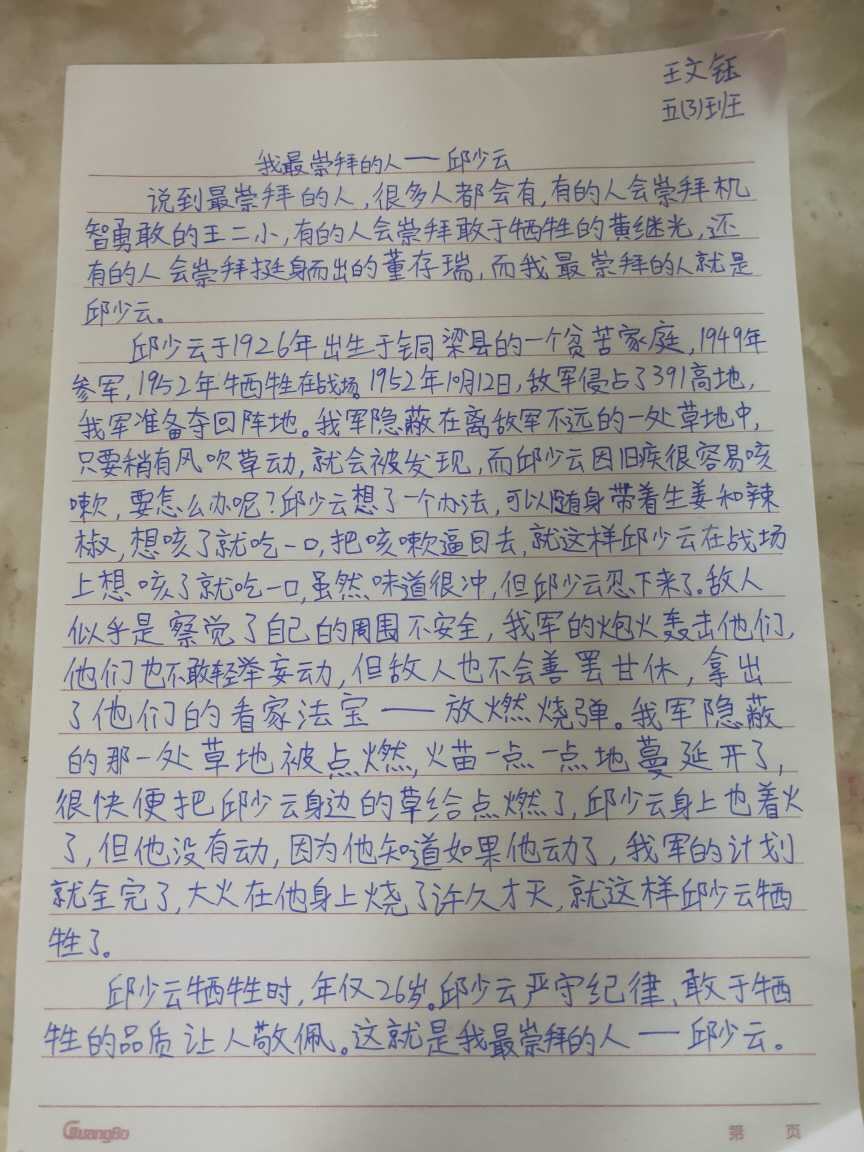 王文钰
五(3)班
我最崇拜的人——邱少云
说到最崇拜的人,很多人都会有,有的人会崇拜机
智勇敢的王二小,有的人会崇拜敢于牺牲的黄继光,还
有的人会崇拜挺身而出的董存瑞,而我最崇拜的人就是
邱少云。
邱少云于1926年出生于铜梁县的一个贫苦家庭,1949年
参军,1952年牺牲在战场。1952年10月12日,敌军侵占了391高地,
我军准备夺回阵地。我军隐蔽在离敌军不远的一处草地中,
只要稍有风吹草动,就会被发现,而邱少云因旧疾很容易咳
嗽,要怎么办呢?邱少云想了一个办法,可以随身带着生姜和辣
椒,想咳了就吃一口,把咳嗽逼回去,就这样邱少云在战场
上想咳了就吃一口,虽然味道很冲,但邱少云忍下来了。敌人
似乎是察觉了自己的周围不安全,我军的炮火轰击他们,
他们也不敢轻举妄动,但敌人也不会善罢甘休,拿出
了他们的看家法宝——放燃烧弹。我军隐蔽
的那一处草地被点燃,火苗一点一点地蔓延开了,
很快便把邱少云身边的草给点燃了,邱少云身上也着火
了,但他没有动,因为他知道如果他动了,我军的计划
就全完了,大火在他身上烧了许久才灭,就这样邱少云牺
牲了。
邱少云牺牲时,年仅26岁。邱少云严守纪律、敢于牺
牲的品质让人敬佩。这就是我最崇拜的人——邱少云。
GuangBo
第 页